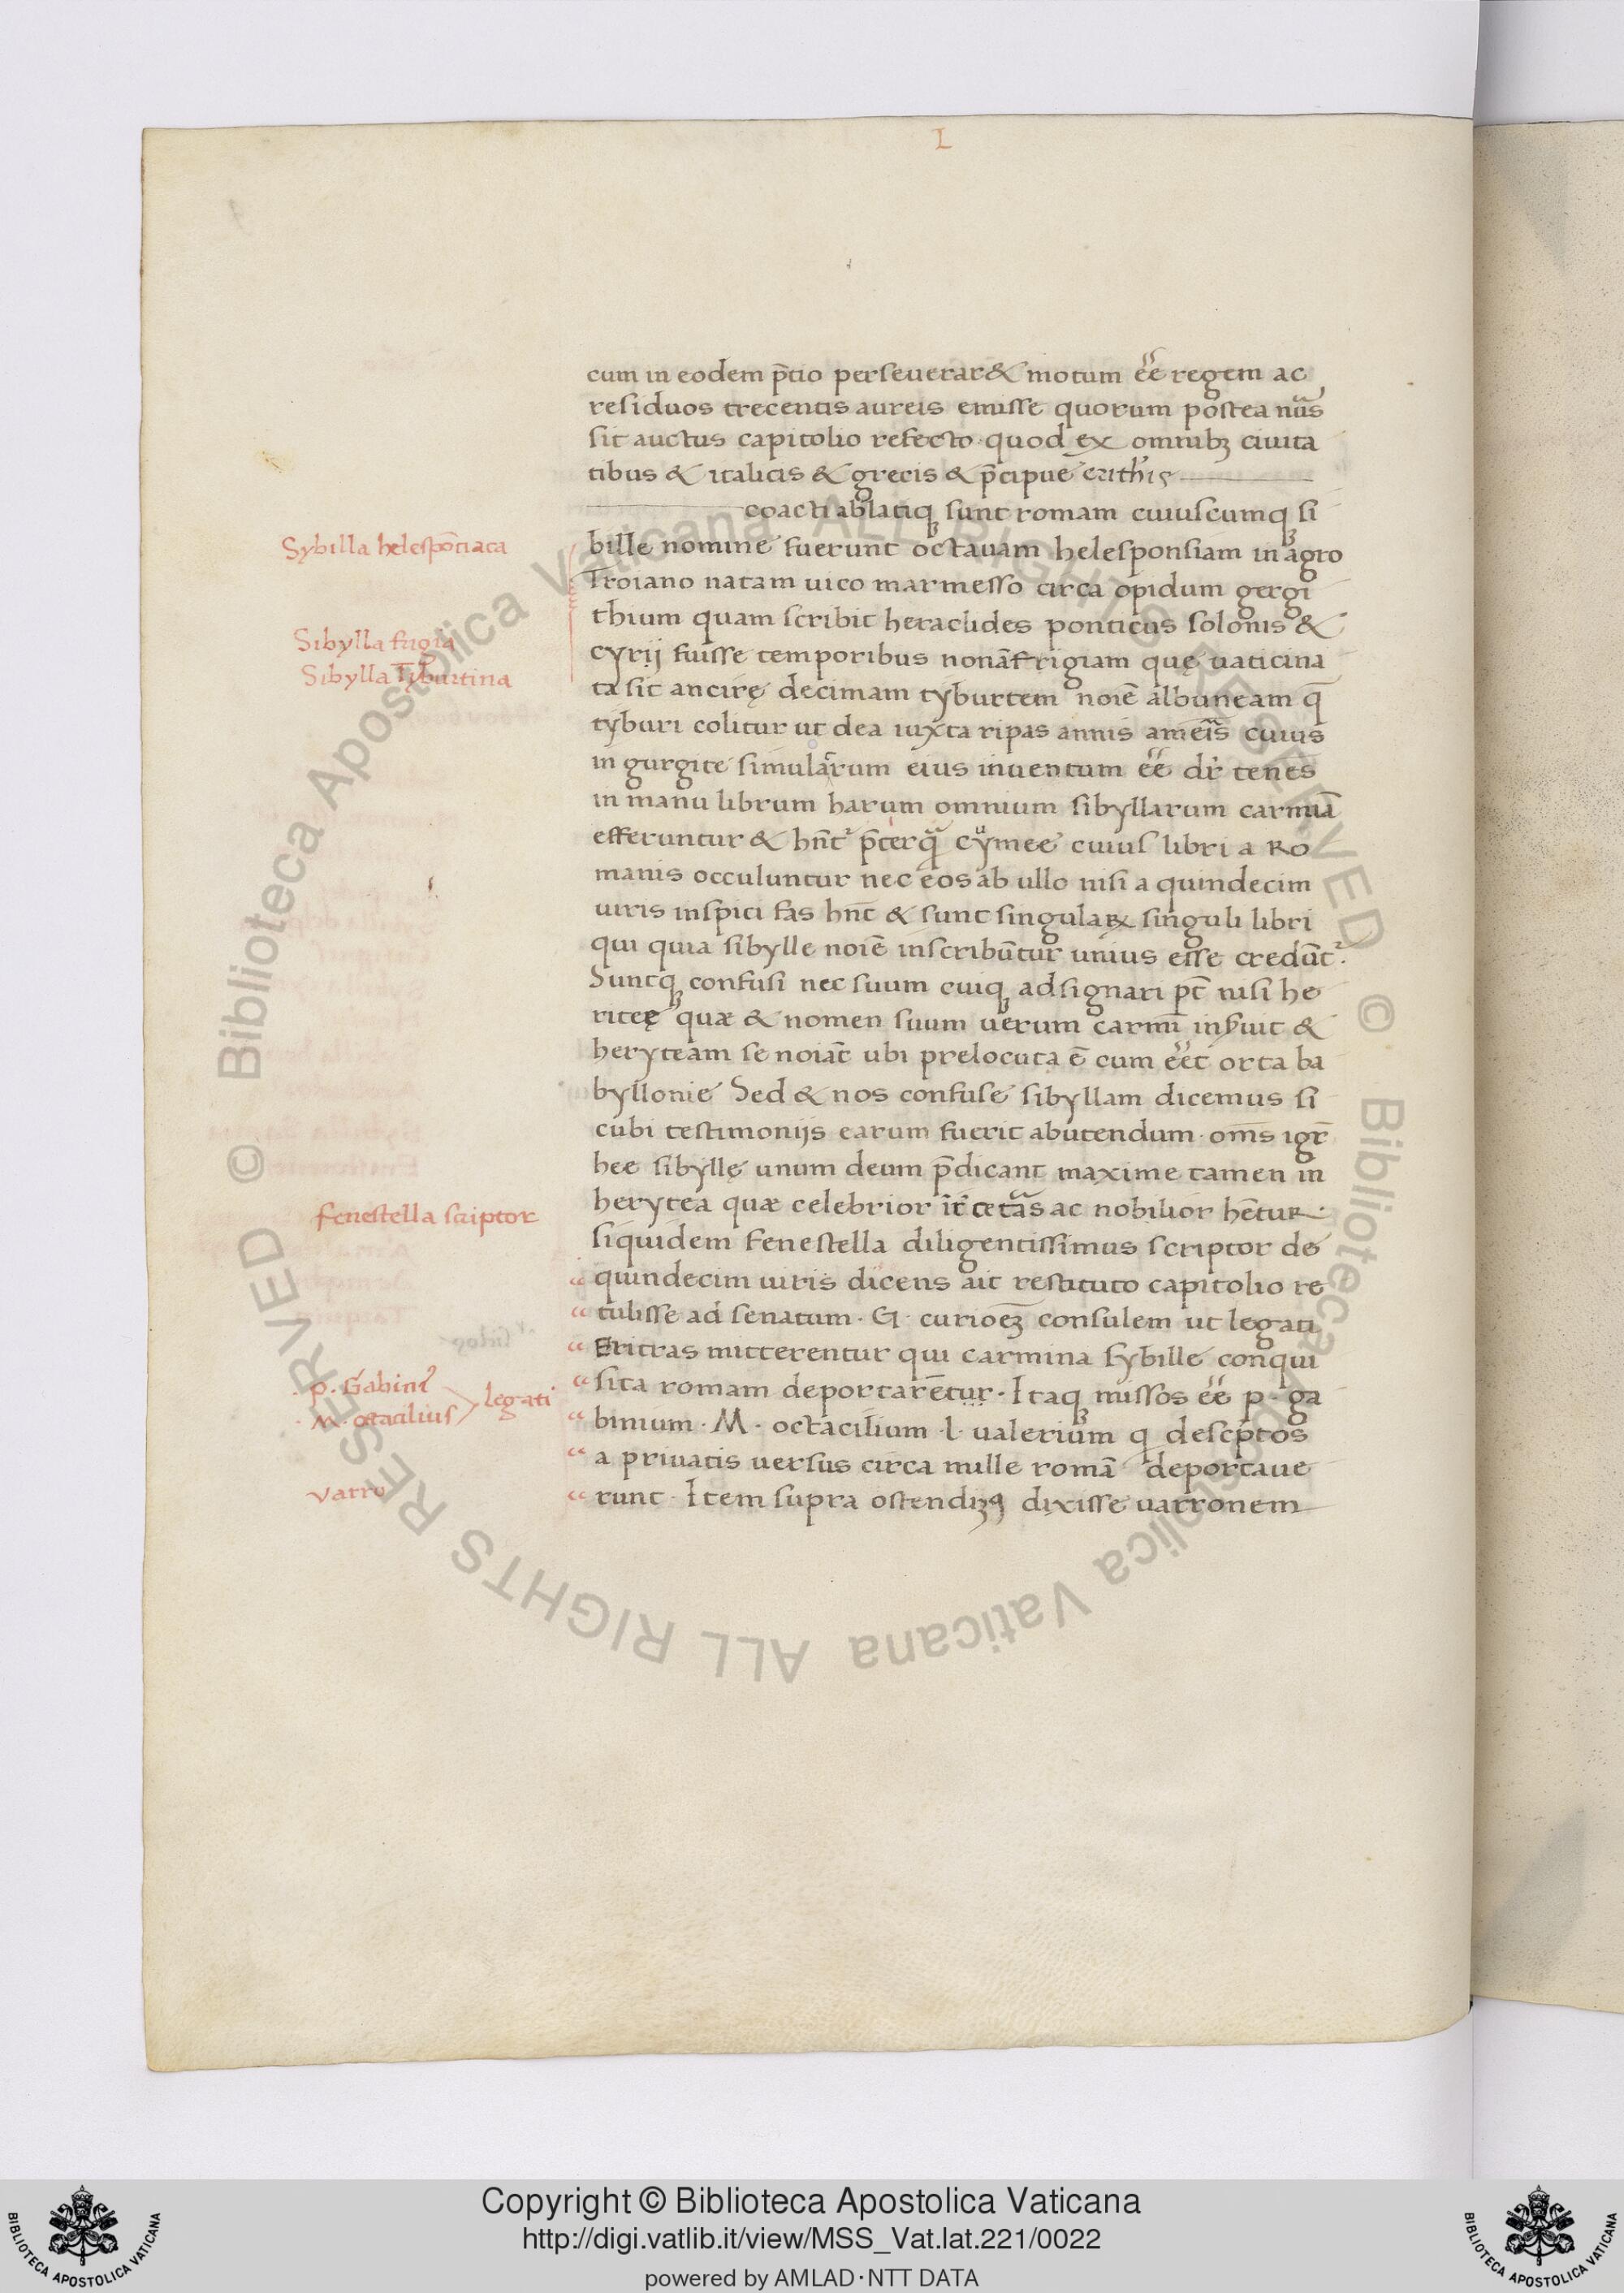 L
cum in eodem p̄tio perseuerar& motum ee͂ regem ac
residuos trecentis aureis emisse quorum postea nu͂s
sit auctus capitolio refecto quod ex omnibꝫ ciuita
tibus & italicis & grecis & p̄cipue erith'is
coacti ablatiqꝫ sunt romam cuiuscumqꝫ si
Sybilla helespōtiaca
bille nomine fuerunt octauam helesponsiam in agro
Troiano natam uico marmesso circa opidum gergi
thium quam scribit heraclides ponticus solonis &
Sibylla frigia
cyrij fuisse temporibus nonā frigiam quę uaticina
Sibylla Tyburtina
ta sit ancirę decimam tyburtem noiē albuneam q̄
tyburi colitur ut dea iuxta ripas annis amei͂s cuius
in gurgite simulacrum eius inuentum ee͂ dr̄ tenes
in manu librum harum omnium sibyllarum carmiā
efferuntur & hn̄t² p̄terqᵃ cymee cuius libri a Ro
manis occuluntur nec eos ab ullo nisi a quindecim
uiris inspici fas hn̄t & sunt singulaꝝ singuli libri
qui quia sibylle noiē inscribūtur unius esse credūt².
Suntqꝫ confusi nec suum cuiqꝫ adsignari pt̄ nisi he
riteę quæ & nomen suum uerum carmī inẜuit &
heryteam se noiāt ubi prelocuta ē cum ee͂t orta ba
byllonie Sed & nos confuse sibyllam dicemus si
cubi testimonijs earum fuerit abutendum · om̄s igr̄
hee sibyllę unum deum p̄dicant maxime tamen in
herytea quæ celebrior ir̄ cetᵃs ac nobilior hētur·
Fenestella scriptor
siquidem Fenestella diligentissimus scriptor de
“ quindecim uiris dicens ait restituto capitolio re
“ tulisse ad senatum · G · curioēꝫ consulem ut legati
“ Eritras mitterentur qui carmina sybille conqui
“ sita romam deportarētur · Itaqꝫ missos ee͂ p · ga
p. Gabini⁹
M. octacilius
legati
“ binium · M · octacilium · l · ualerium q descp̄tos
“ a priuatis uersus circa mille romā deportaue
varro
“ runt · Item supra ostendiꝫꝯ dixisse uarronem
© Biblioteca Apostolica Vaticana ALL RIGHTS RESERVED © Biblioteca Apostolica Vaticana ALL RIGHTS RESERVED
Copyright © Biblioteca Apostolica Vaticana
http://digi.vatlib.it/view/MSS_Vat.lat.221/0022
powered by AMLAD·NTT DATA
BIBLIOTECA APOSTOLICA VATICANA
BIBLIOTECA APOSTOLICA VATICANA